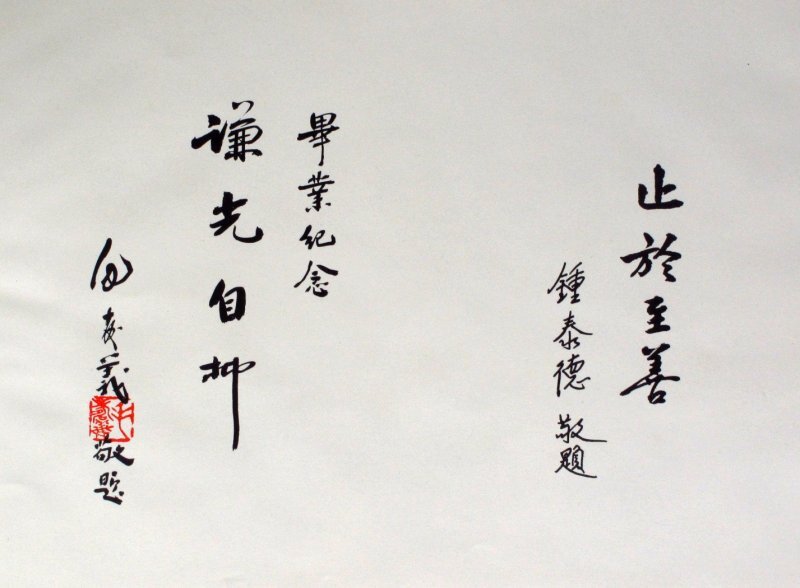 止於至善
鍾泰德 敬題
畢業紀念
謙光自抑
義 敬題